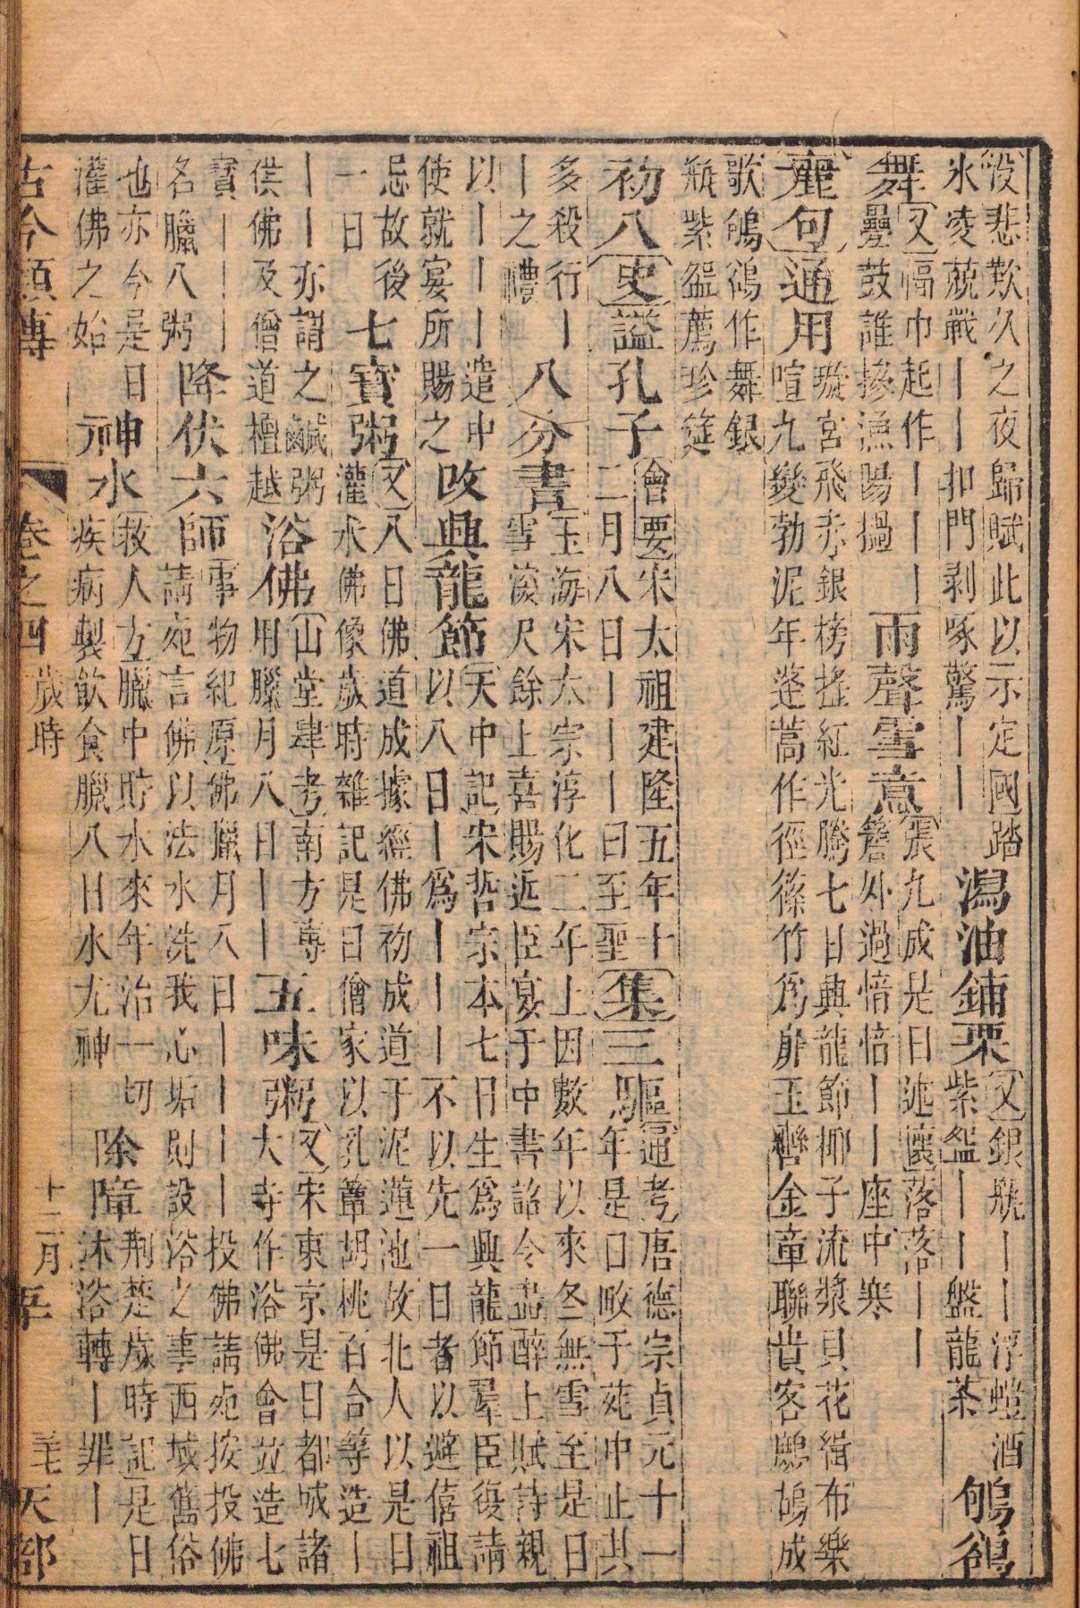 役悲歎久之夜歸賦此以示定國踏
氷凌兢戰｜｜扣門剥啄驚｜｜
潟油鋪栗
又銀觥｜｜浮螘酒
紫盌｜｜盤龍茶
鴝鵒
舞
又幅巾起作｜｜｜
疊鼓誰摻漁陽撾
雨聲雪意
張九成是日述懷落落｜｜
簷外過愔愔｜｜座中寒
麄句通用
璇宮飛赤銀榜搖紅光騰七日興龍節椰子流漿貝花緝布樂
喧九變勃泥年蓬蒿作徑篠竹爲扉玉轡金章聯貴客鸕鴣成
歌鴝鵒作舞銀
瓶紫盌薦珍筵
初八
史
謚孔子
會要宋太祖建隆五年十
二月八日｜｜｜曰至聖
集
三驅
通考唐德宗貞元十一
年是日畋于苑中止其
多殺行｜
｜之禮
八分書
玉海宋太宗淳化二年上因數年以來冬無雪至是日
雪深尺餘上喜賜近臣宴于中書詔令盡醉上賦詩親
以｜｜｜遣中
使就宴所賜之
改興龍節
天中記宋哲宗本七日生爲興龍節羣臣復請
以八日｜爲｜｜｜不以先一日者以避僖祖
忌故後
一日
七寳粥
又八日佛道成據經佛初成道于泥蓮池故北人以是日
灌水佛像歲時雜記是日僧家以乳蕈胡桃百合等造｜
｜｜亦謂之鹹粥
供佛及僧道檀越
浴佛
山堂肆考南方專
用臘月八日｜｜
五味粥
又宋東京是日都城諸
大寺作浴佛會竝造七
寳｜｜｜
名臘八粥
降伏六師
事物紀原佛臘月八日｜｜｜｜投佛請宛按投佛
請宛言佛以法水洗我心垢則設浴之事西域舊俗
也亦今是日
灌佛之始
神水
救人方臘中貯水來年治一切
疾病製飲食臘八日水尤神
除障
荆楚歲時記是日
沐浴轉｜罪｜
古今類傳
卷之四 歲時
十二月 天部